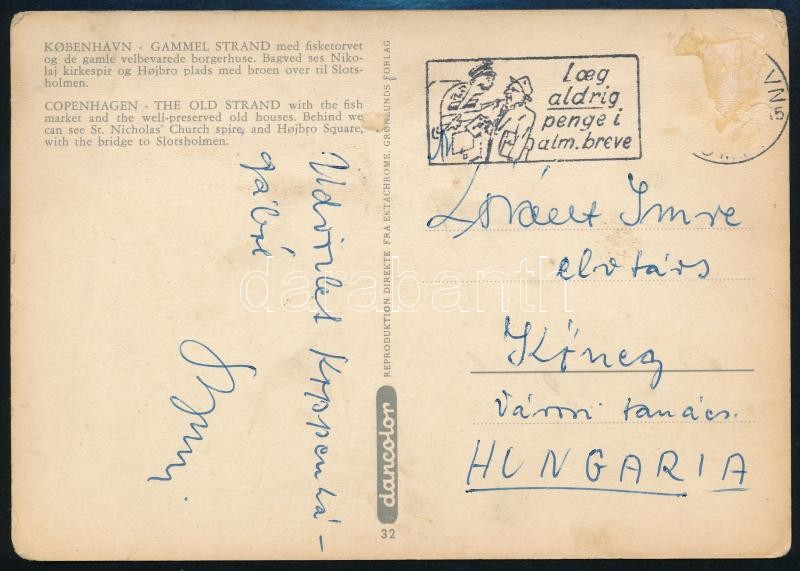 KØBENHAVN - GAMMEL STRAND med fisketorvet
og de gamle velbevarede borgerhuse. Bagved ses Niko-
laj kirkespir og Højbro plads med broen over til Slots-
holmen.
COPENHAGEN - THE OLD STRAND with the fish
market and the well-preserved old houses. Behind we
can see St. Nicholas' Church spire, and Højbro Square,
with the bridge to Slotsholmen.
Üdvözlet Koppenhá-
gából
REPRODUKTION DIREKTE FRA EKTACHROME, GRØNLUNDS FORLAG
dancolor
32
Læg
aldrig
penge i
alm. breve
VN 5
Lóránt Imre
elvtárs
Kőszeg
Városi tanács.
HUNGARIA
darabanth